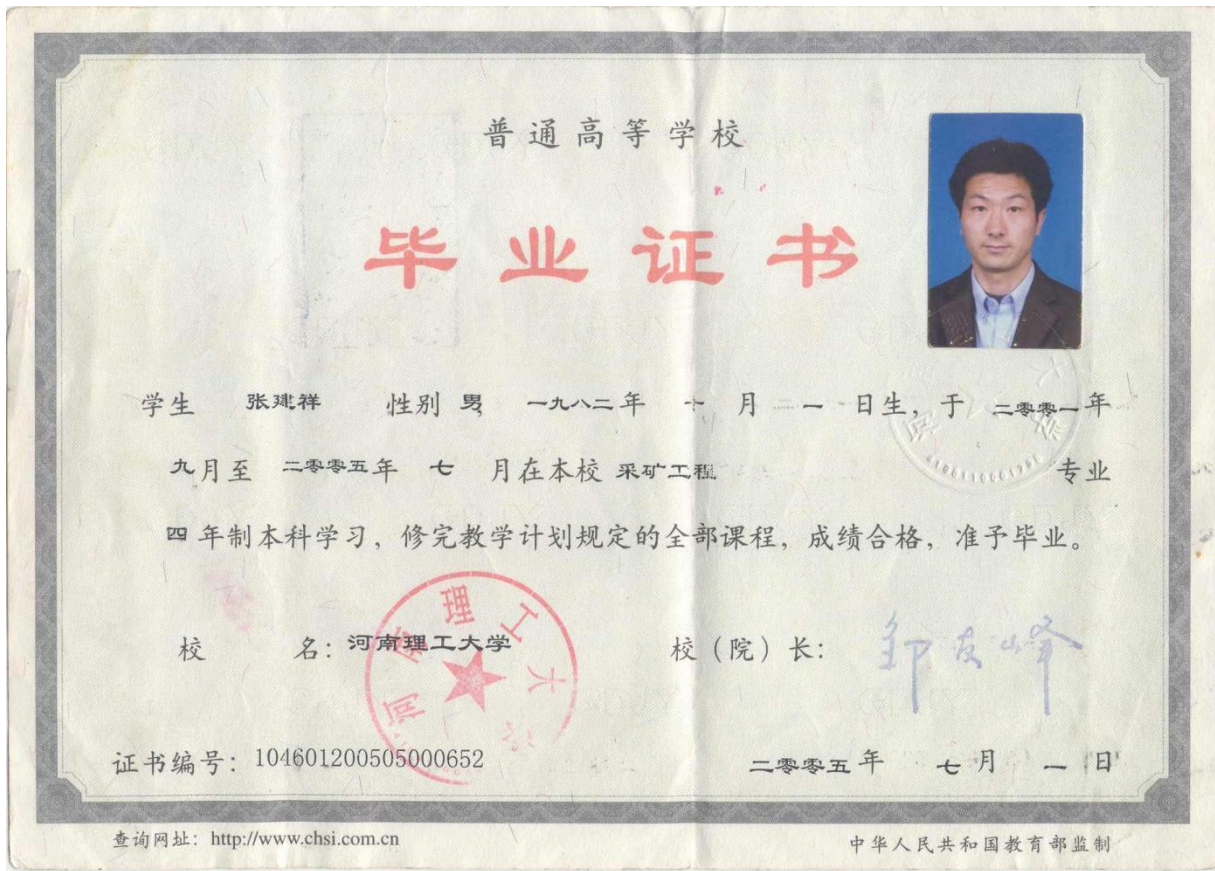 普通高等学校
毕业证书
学生 张建祥 性别 男 一九八二年 十 月 二一 日生，于 二零零一年
九月至 二零零五年 七 月在本校 采矿工程 专业
四年制本科学习，修完教学计划规定的全部课程，成绩合格，准予毕业。
校 名：河南理工大学 校（院）长：邹友峰
河南理工大学
证书编号：104601200505000652 二零零五年 七月 一日
查询网址：http://www.chsi.com.cn 中华人民共和国教育部监制